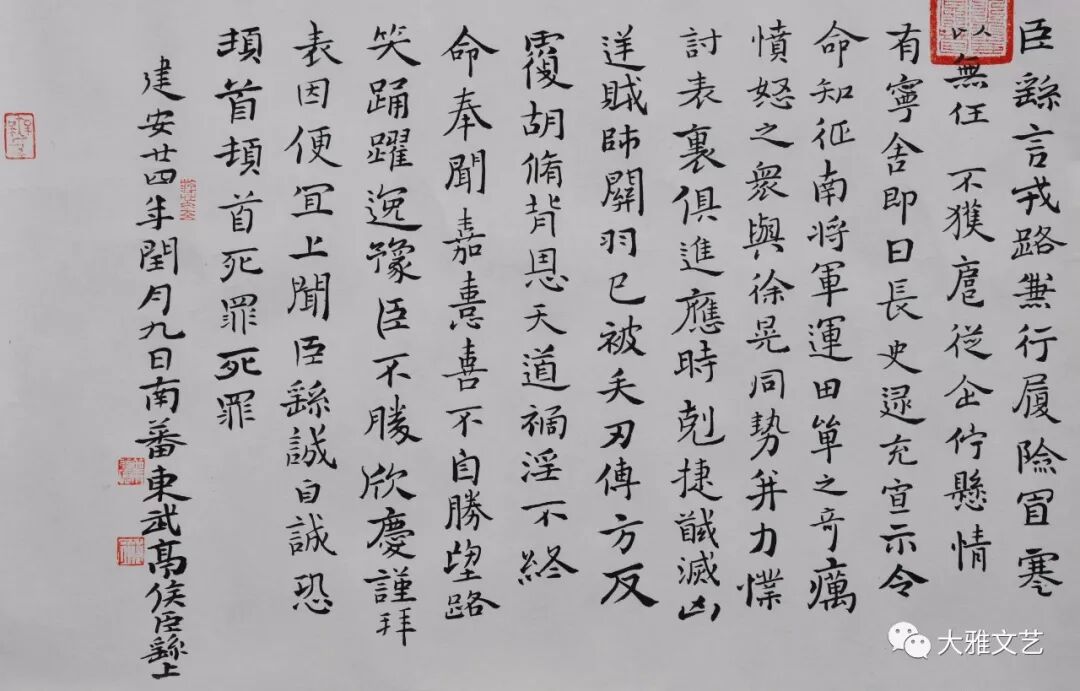 臣繇言戎路兼行履險冒寒
以無任不獲扈從企佇懸情
有寧舍即日長史逯充宣示令
命知征南將軍運田單之奇癘
憤怒之眾與徐晃同勢并力㦎
討表裏俱進應時剋捷馘滅凶
逆賊帥關羽已被矢刃傅方反
覆胡脩背恩天道禍淫不終
命奉聞嘉憙喜不自勝望路
笑踊躍逸豫臣不勝欣慶謹拜
表因便宜上聞臣繇誠自誠恐
頓首頓首死罪死罪
建安廿四年閏月九日南蕃東武高侯臣繇上
大雅文艺